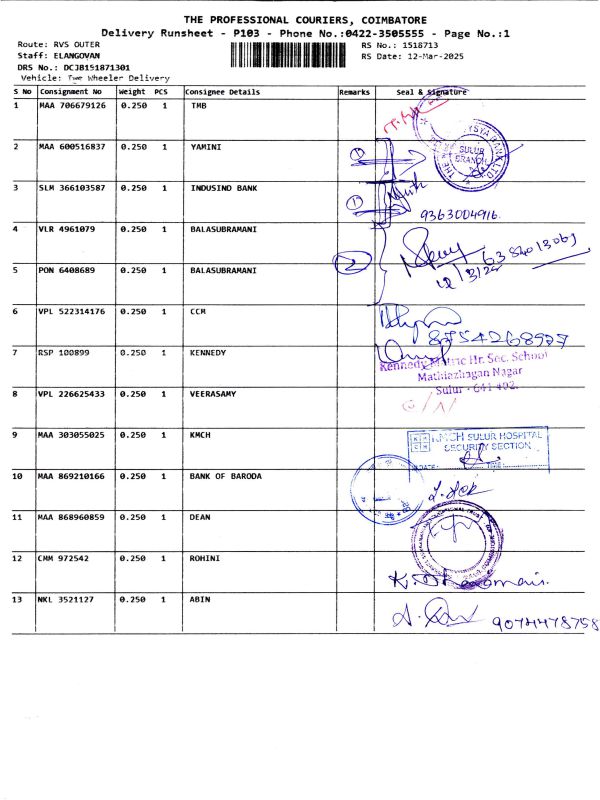 THE PROFESSIONAL COURIERS, COIMBATORE
Delivery Runsheet - P103 - Phone No.:0422-3505555 - Page No.:1
Route: RVS OUTER
RS No.: 1518713
Staff: ELANGOVAN
RS Date: 12-Mar-2025
DRS No.: DCJB151871301
Vehicle: Two Wheeler Delivery
S No Consignment No Weight PCS Consignee Details Remarks Seal & Signature
1 MAA 706679126 0.250 1 TMB
2 MAA 600516837 0.250 1 YAMINI
①
SULUR
BRANCH
3 SLM 366103587 0.250 1 INDUSIND BANK
①
9363004916.
4 VLR 4961079 0.250 1 BALASUBRAMANI
②
12/3/25
5 PON 6408689 0.250 1 BALASUBRAMANI
6 VPL 522314176 0.250 1 CCM
8754268977
7 RSP 100899 0.250 1 KENNEDY
Kennedy Matric Hr. Sec. School
Mathiazhagan Nagar
Sulur - 641 402.
8 VPL 226625433 0.250 1 VEERASAMY
9 MAA 303055025 0.250 1 KMCH
KMCH SULUR HOSPITAL
SECURITY SECTION
DATE: TIME:
10 MAA 869210166 0.250 1 BANK OF BARODA
11 MAA 868960859 0.250 1 DEAN
12 CMM 972542 0.250 1 ROHINI
13 NKL 3521127 0.250 1 ABIN
9074478758